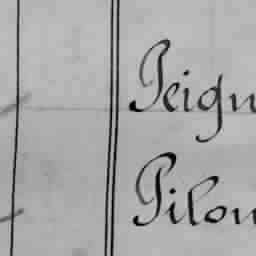 Peign
Pilon